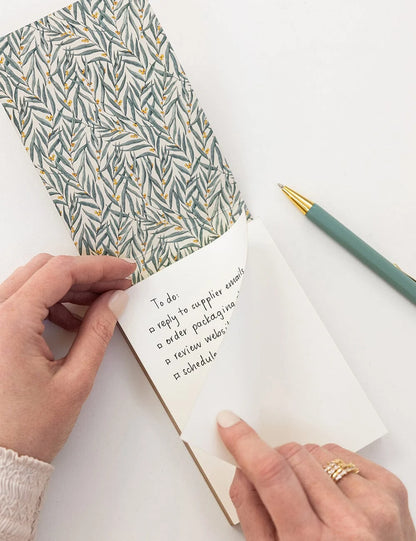 To do:
reply to supplier emails
order packaging
review
schedule